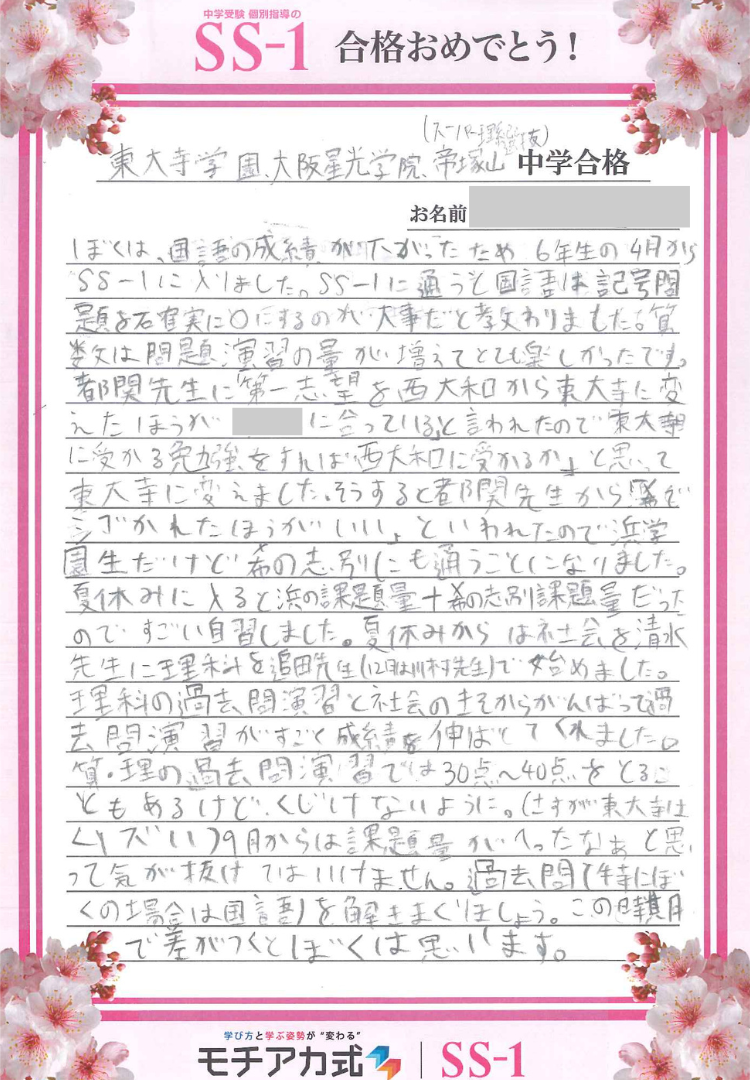 中学受験 個別指導の
SS-1 合格おめでとう!
(スーパー理系選抜)
東大寺学園、大阪星光学院、帝塚山 中学合格
お名前
ぼくは、国語の成績が下がったため6年生の4月から
SS-1に入りました。SS-1に通うと国語は記号問
題を石確実に○にするのが大事だと教わりました。算
数は問題演習の量が増えてとても楽しかったです。
都関先生に第一志望を西大和から東大寺に変
えたほうが に合っている」と言われたので「東大寺
に受かる勉強をすれば西大和に受かるか」と思って
東大寺に変えました。そうすると都関先生から
かれたほうがいい」といわれたので浜学
園生だけど希の志別にも通うことになりました。
夏休みに入ると浜の課題量+希の志別課題量だった
のですごい自習しました。夏休みからは社会を清水
先生に理科を追田先生(12月は川村先生)で始めました。
理科の過去問演習と社会のきそからがんばって過
去問演習がすごく成績を伸ばしてくれました。
算・理の過去問演習では30点〜40点をとるこ
ともあるけど、くじけないように。(さすが東大寺は
ムズい)9月からは課題量がへったなぁと思
って気が抜けてはいけません。過去問(特にぼ
くの場合は国語)を解きまくりましょう。この時期
で差がつくとぼくは思います。
学び方と学ぶ姿勢が"変わる"
モチアカ式 | SS-1